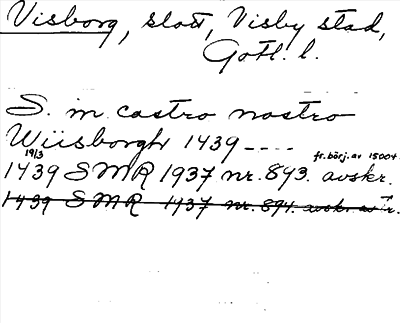 Visborg, slott, Visby stad,
Gotl. l.
S. m castro nostro
Wiisborgh 1439 ----
19/3
fr. börj. av 1500t.
1439 SMR 1937 nr. 893. avskr.
1439 SMR 1937 nr. 894. avskr.